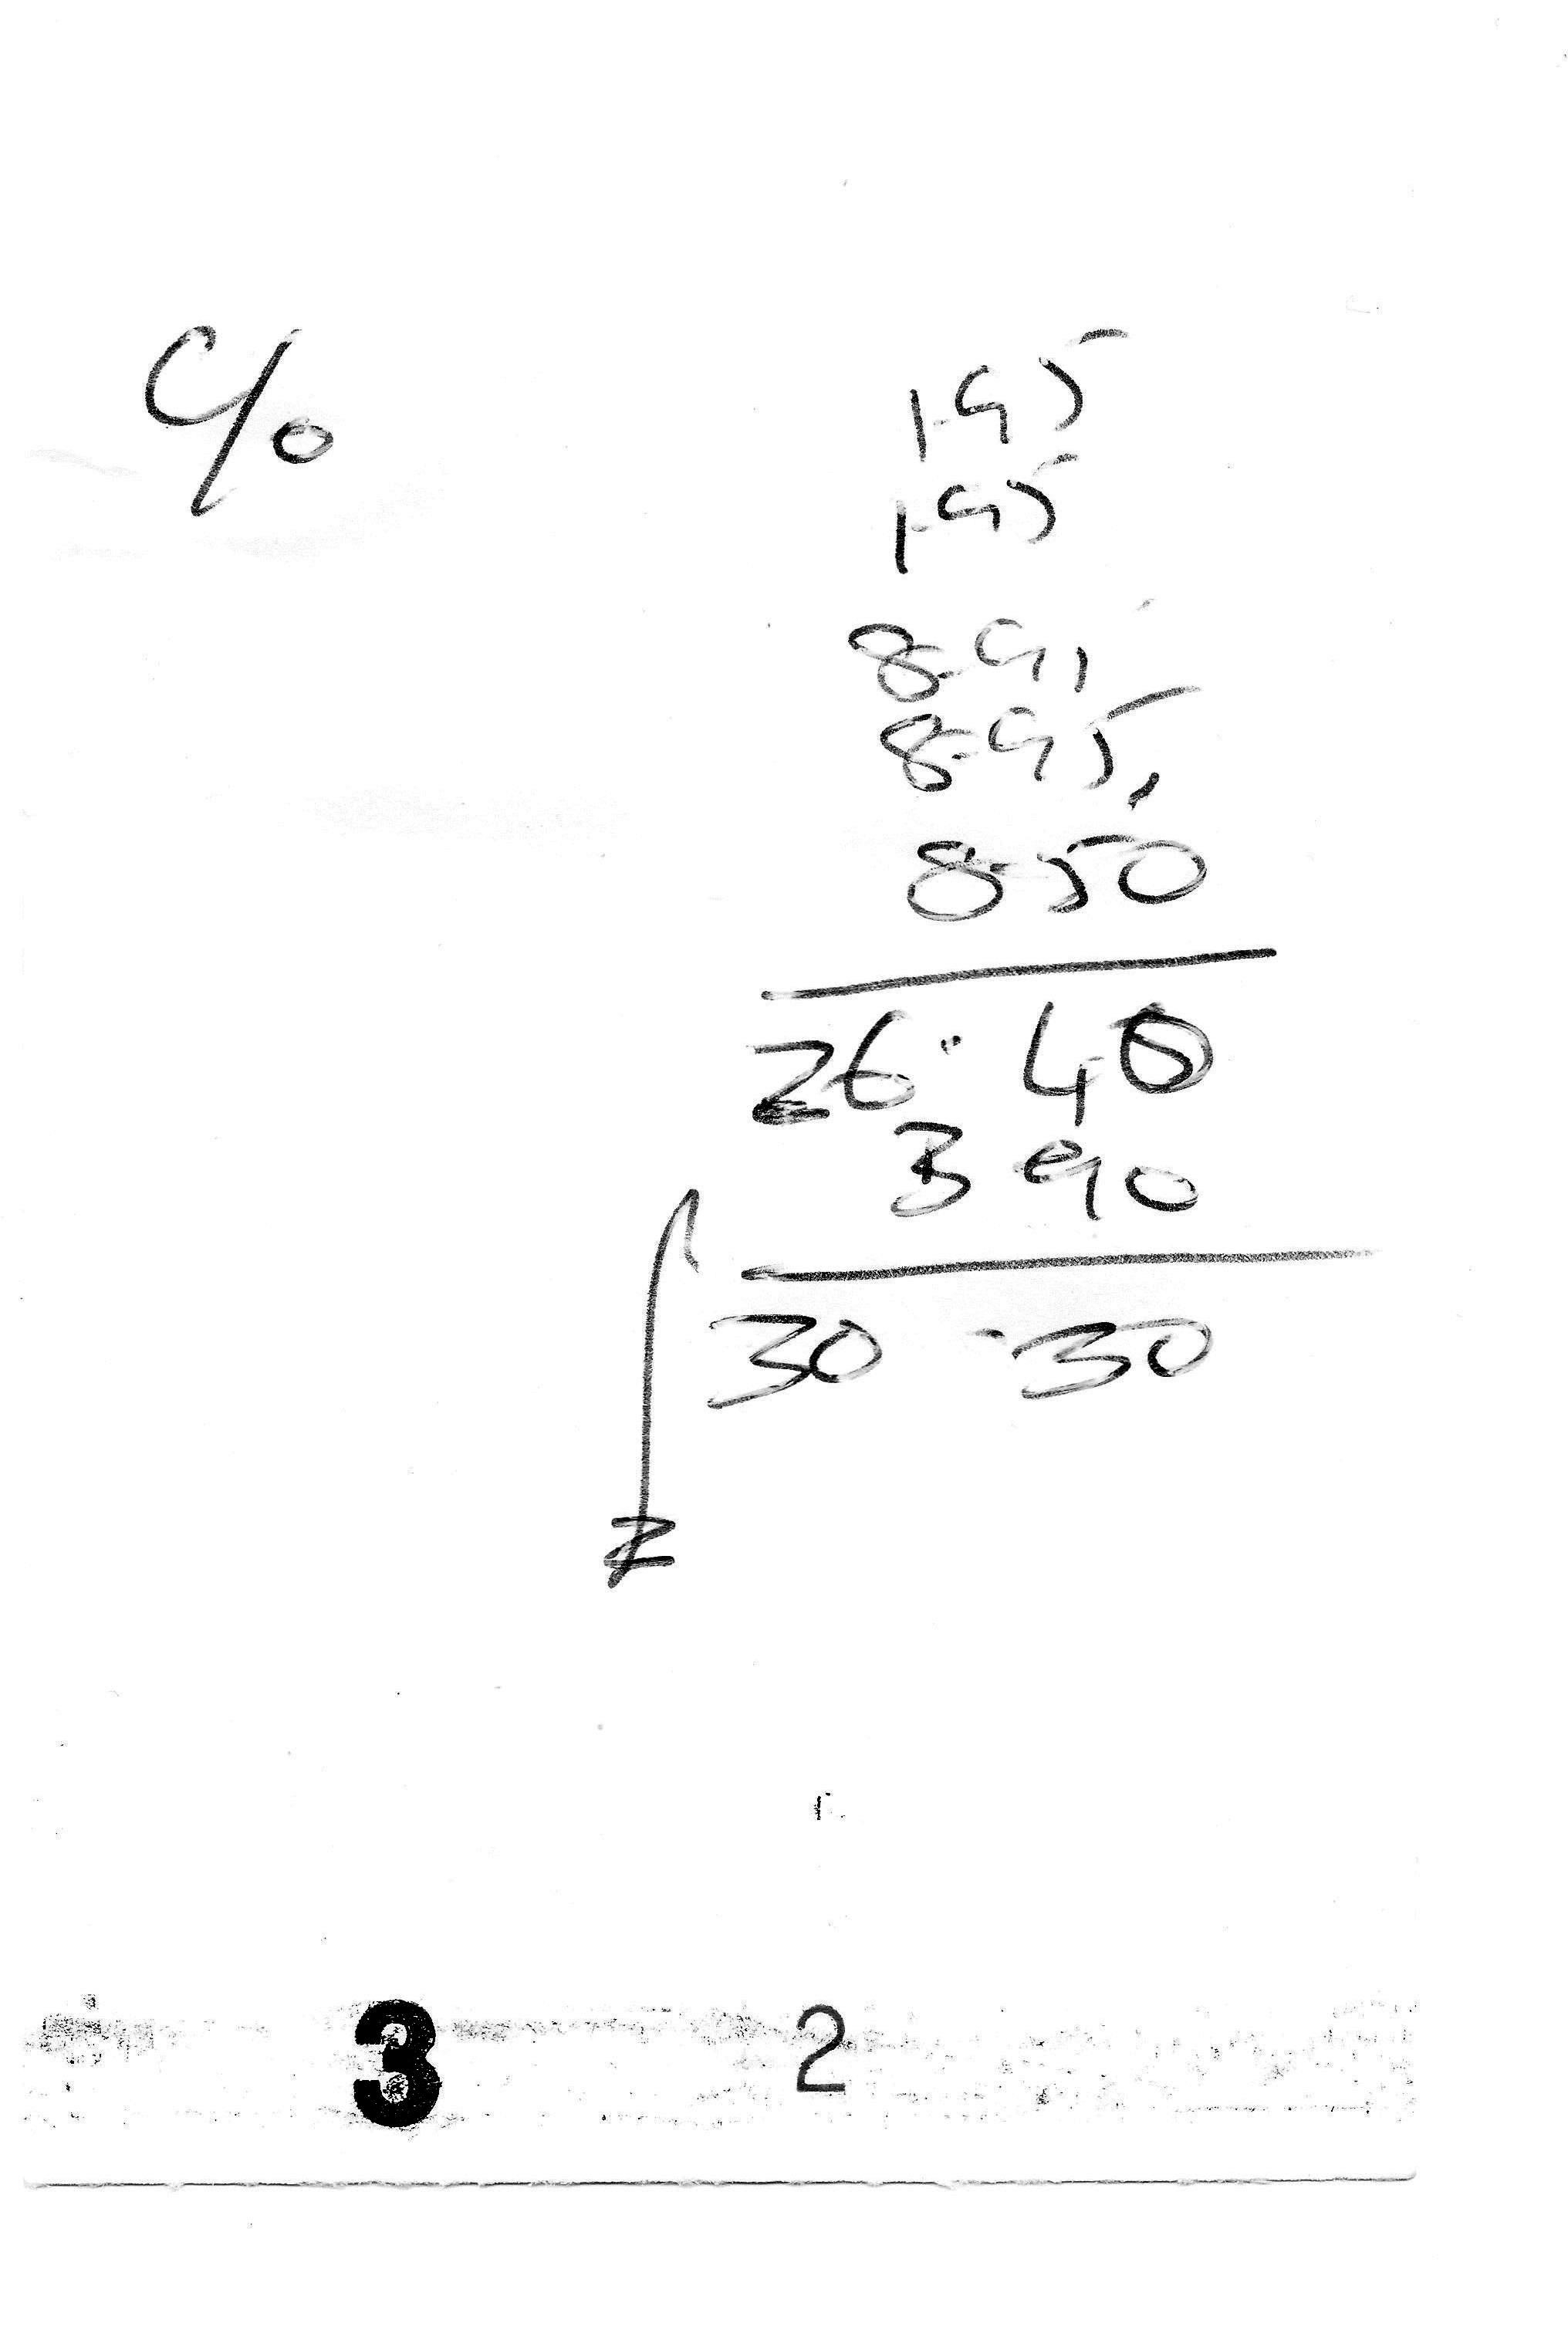 C/o
1.95
1.95
8.95
8.95
8.50
26.40
3 90
30.30
3 2